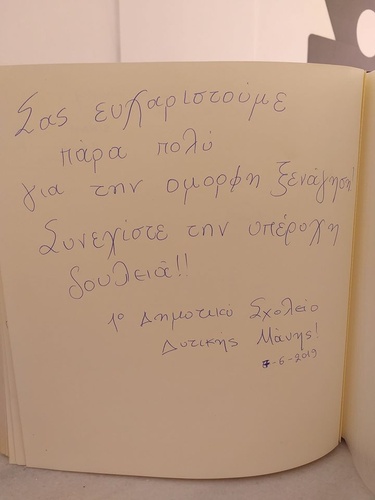 Σας ευχαριστούμε
πάρα πολύ
για την ομορφη ξενάγηση
Συνεχίστε την υπέροχη
δουλειά!!
1ο Δημοτικό Σχολείο
Δυτικής Μάνης!
7-6-2019